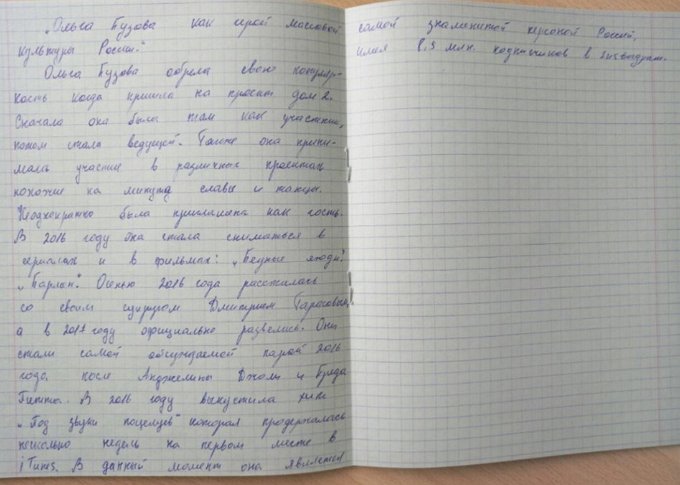 „Ольга Бузова как герой массовой
культуры России."
Ольга Бузова обрела свою популяр-
ность когда пришла на проект дом 2.
Сначала она была там как участница,
потом стала ведущей. Также она прини-
мала участие в различных проектах
похожие на минута славы и танцы.
Неоднократно была приглашена как гость.
В 2016 году она стала сниматься в
сериалах и в фильмах: „Бедные люди",
„Парлон". Осенью 2016 года рассталась
со своим супругом Дмитрием Тарасовым,
а в 2017 году официально развелись. Они
стали самой обсуждаемой парой 2016
года. после Анджелины Джоли и Брэда
Питта. В 2016 году выпустила хит
„Под звуки поцелуев" которая продержалась
несколько недель на первом месте в
iTunes. В данный момент она является
самой знаменитой персоной России,
имея 8,5 млн. подписчиков в инстаграм.